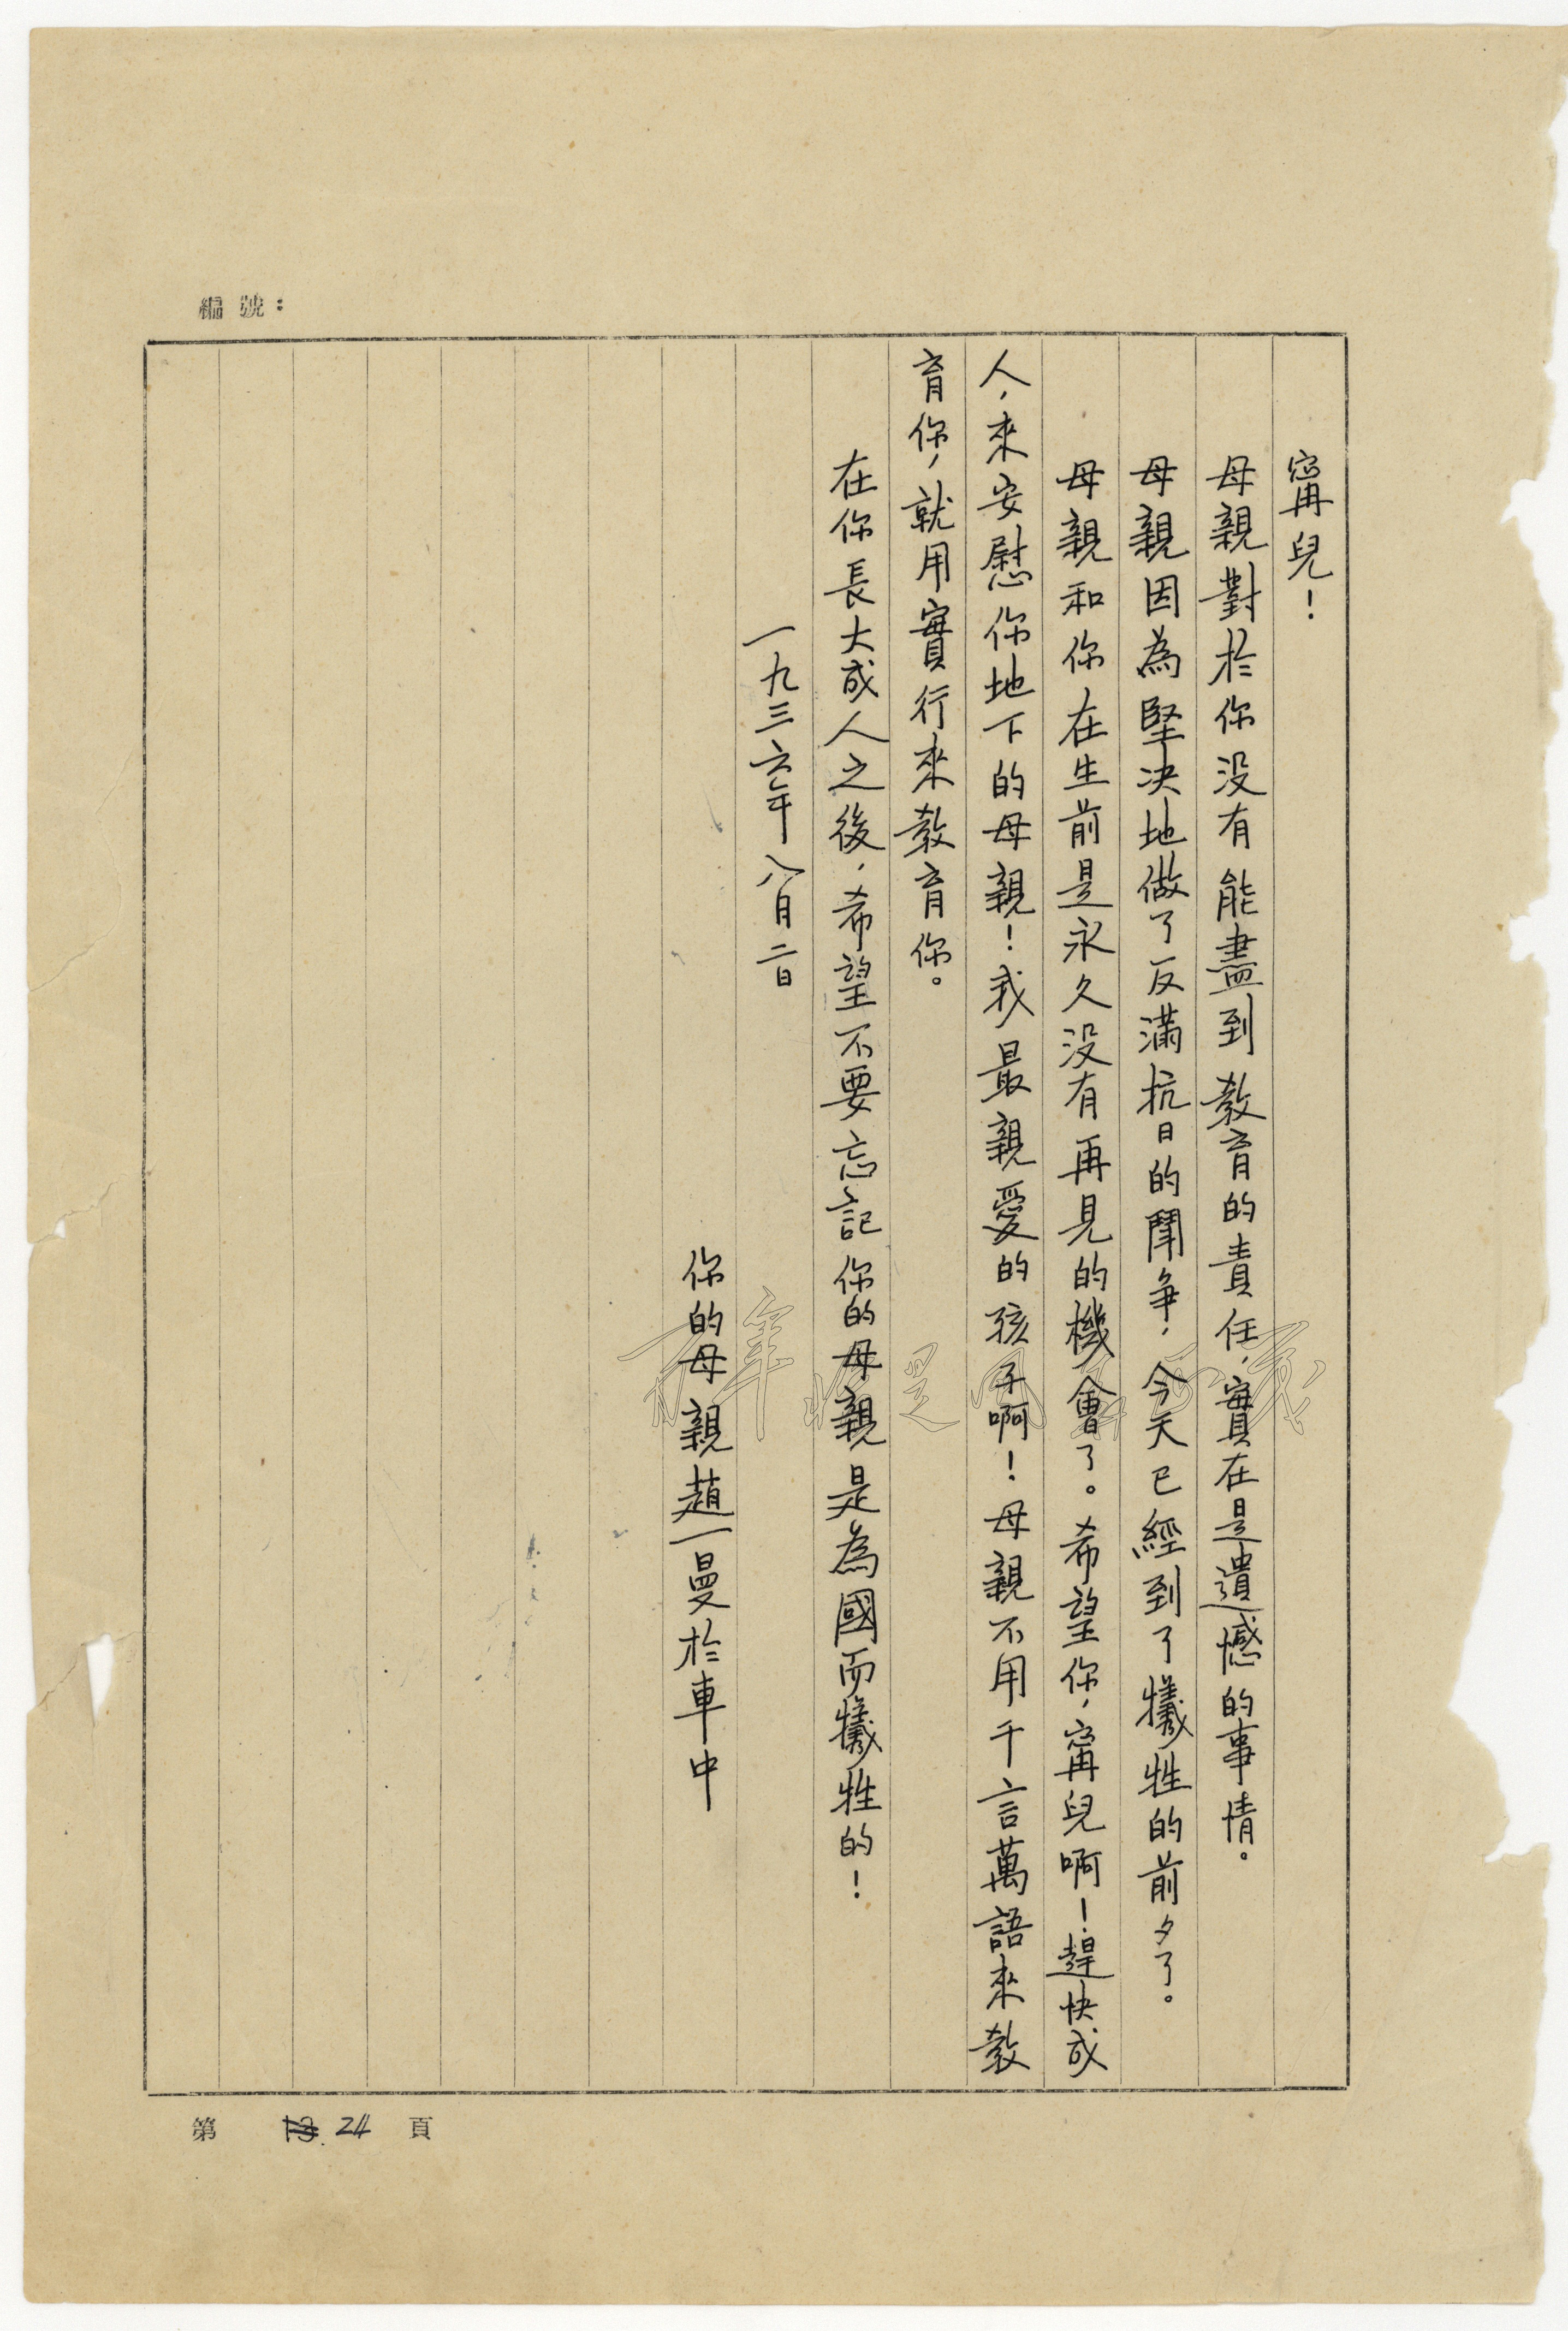 編號：
甯兒！
母親對於你没有能盡到教育的責任，實在是遺憾的事情。
母親因為堅决地做了反滿抗日的鬪争，今天已經到了犧牲的前夕了。
母親和你在生前是永久没有再見的機會了。希望你，甯兒啊！趕快成
人，來安慰你地下的母親！我最親愛的孩子啊！母親不用千言萬語來教
育你，就用實行來教育你。
在你長大成人之後，希望不要忘記你的母親是為國而犧牲的！
一九三六年八月二日
你的母親趙一曼於車中
第 24 頁